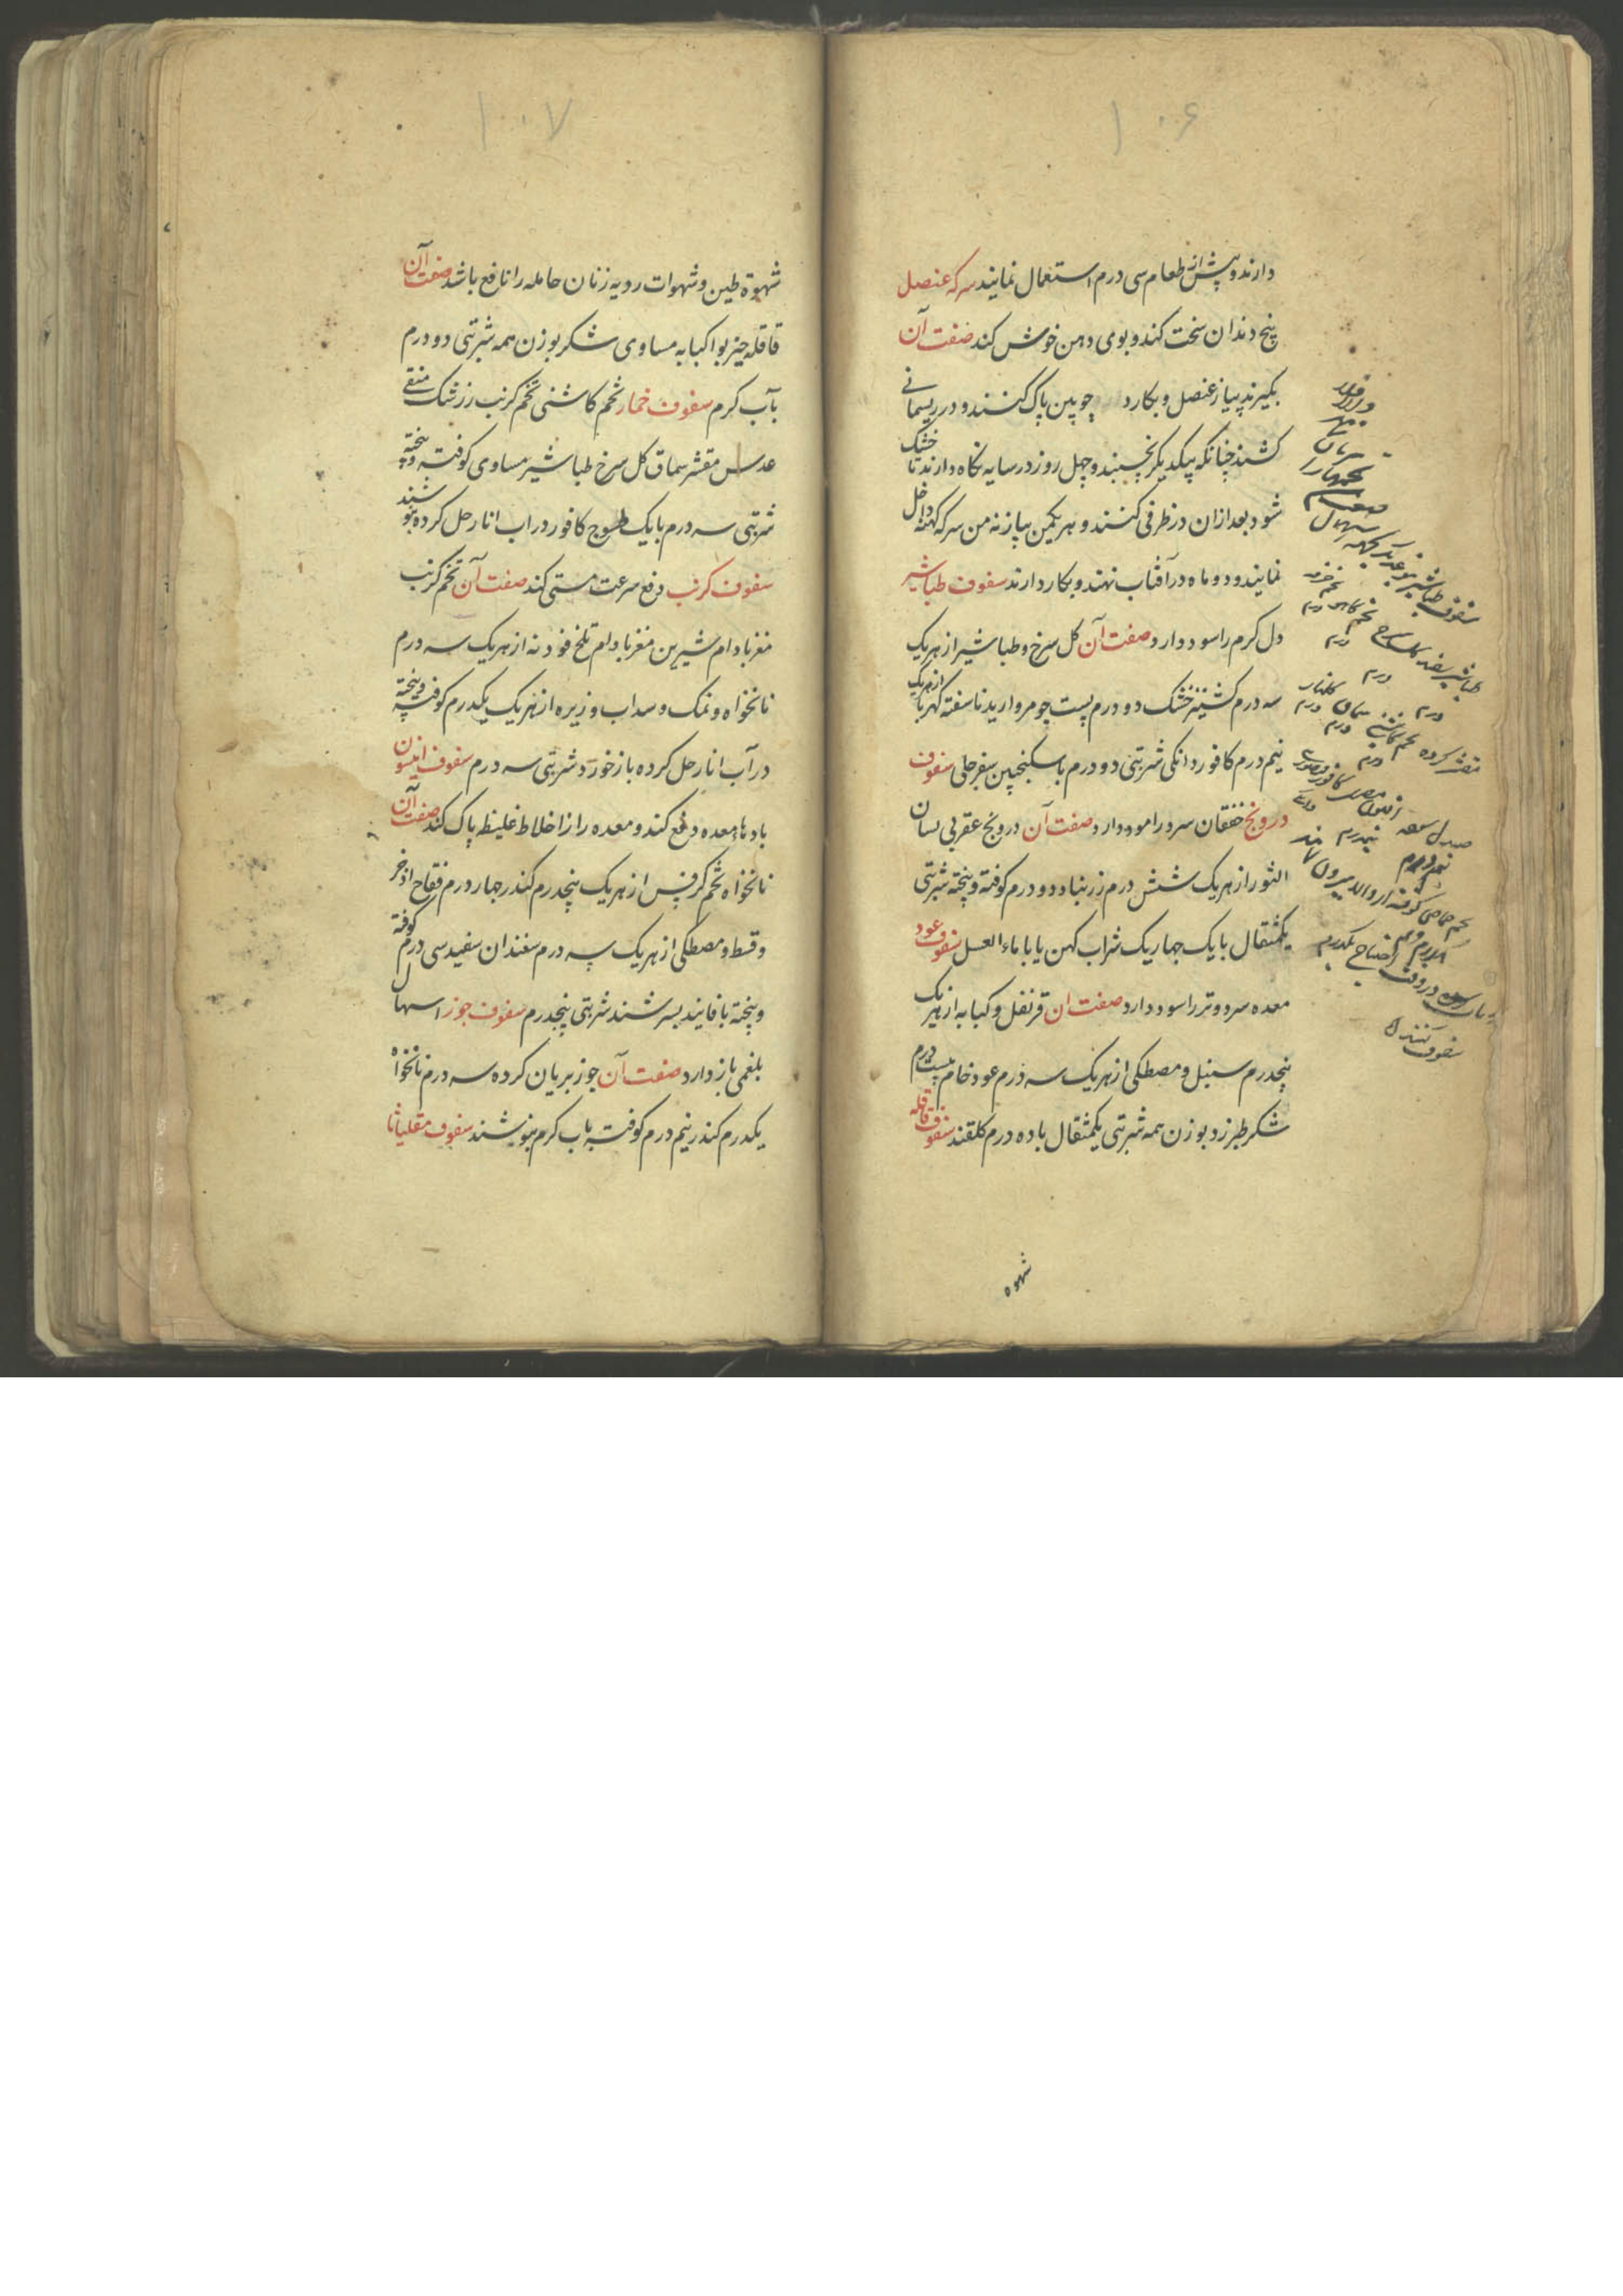 ۱۰۶
دارند و پیش از طعام سی درم استعمال نمایند سرکه عنصل
پنج دندان سخت کند و بوی دهن خوش کند صفت آن
بکیرند پیاز عنصل و بکارد چوپین پاک کنند و در ریسمانی
کشند چنانکه بیکدیکر نچسبند و چهل روز در سایه نکاه دارند تا خشک
شود بعد ازان در ظرفی کنند و بهر یکمن پیاز نه من سرکه کهنه داخل
نمایند و دو ماه در آفتاب نهند و بکار دارند سفوف طباشیر
دل کرم را سود دارد صفت آن کل سرخ و طباشیر از هر یک
سه درم کشنیز خشک دو درم پست جو مروارید ناسفته کهربا از هر یک
نیم درم کافور دانکی شربتی دو درم با سکنجبین سفرجلی سفوف
درونج خفقان سرد را سود دارد صفت آن درونج عقربی لسان
الثور از هر یک شش درم زرنباد دو درم کوفته و پیخته شربتی
یکمثقال با یک چهاریک شراب کهن یا با ماء العسل سفوف عود
معده سرد و تر را سود دارد صفت ان قرنفل و کبابه از هر یک
پنجدرم سنبل و مصطکی از هر یک سه درم عود خام بیست درم
شکر طبرزد بوزن همه شربتی یکمثقال با ده درم کلقند سفوف قاقله
شهوه
سفوف طباشیر
درم
کافور
سفوف کنند
۱۰۷
شهوة طین و شهوات ردیه زنان حامله را نافع باشد صفت آن
قاقله جیزبوا کبابه مساوی شکر بوزن همه شربتی دو درم
بآب کرم سفوف خمار تخم کاشنی تخم کرنب زرشک منقے
عدس مقشر سماق کل سرخ طباشیر مساوی کوفته و پیخته
شربتی سه درم با یک طسوج کافور در اب انار حل کرده بنوشند
سفوف کرنب دفع سرعت مستی کند صفت آن تخم کرنب
مغز بادام شیرین مغز بادام تلخ فودنه از هر یک سه درم
نانخواه و نمک و سداب و زیره از هر یک یکدرم کوفته و پیخته
در آب انار حل کرده باز خورد شربتی سه درم سفوف انیسون
بادهاء معده دفع کند و معده را از اخلاط غلیظ پاک کند صفت آن
نانخواه تخم کرفس از هر یک پنجدرم کندر چهار درم فقاح اذخر
و قسط و مصطکی از هر یک سه درم سفندان سفید سی درم کوفته
و پیخته با فانیذ بسرشند شربتی پنجدرم سفوف جوز اسهال
بلغمی باز دارد صفت آن جوز بریان کرده سه درم نانخواه
یکدرم کندر نیم درم کوفته باب کرم بنوشند سفوف مقلیاثا